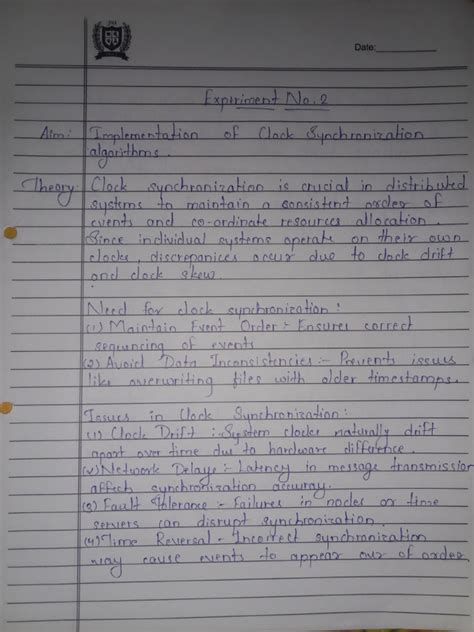 Date:
Experiment No. 2
Aim: Implementation of Clock Synchronization
algorithms.
Theory: Clock synchronization is crucial in distributed
systems to maintain a consistent order of
events and co-ordinate resources allocation.
Since individual systems operate on their own
clocks, discrepanices occur due to clock drift
and clock skew.
Need for clock synchronization:
(1) Maintain Event Order :- Ensures correct
sequncing of events
(2) Avoid Data Inconsistencies :- Prevents issues
like overwriting files with older timestamps.
Issues in Clock Synchronization:
(1) Clock Drift :- System clocks naturally drift
apart over time due to hardware difference.
(2) Network Delays :- Latency in message transmission
affech synchronization accuracy.
(3) Fault Tolerance - Failures in nodes or time
servers can disrupt synchronization.
(4) Time Reversal - Incorrect synchronization
may cause events to appear our of order.